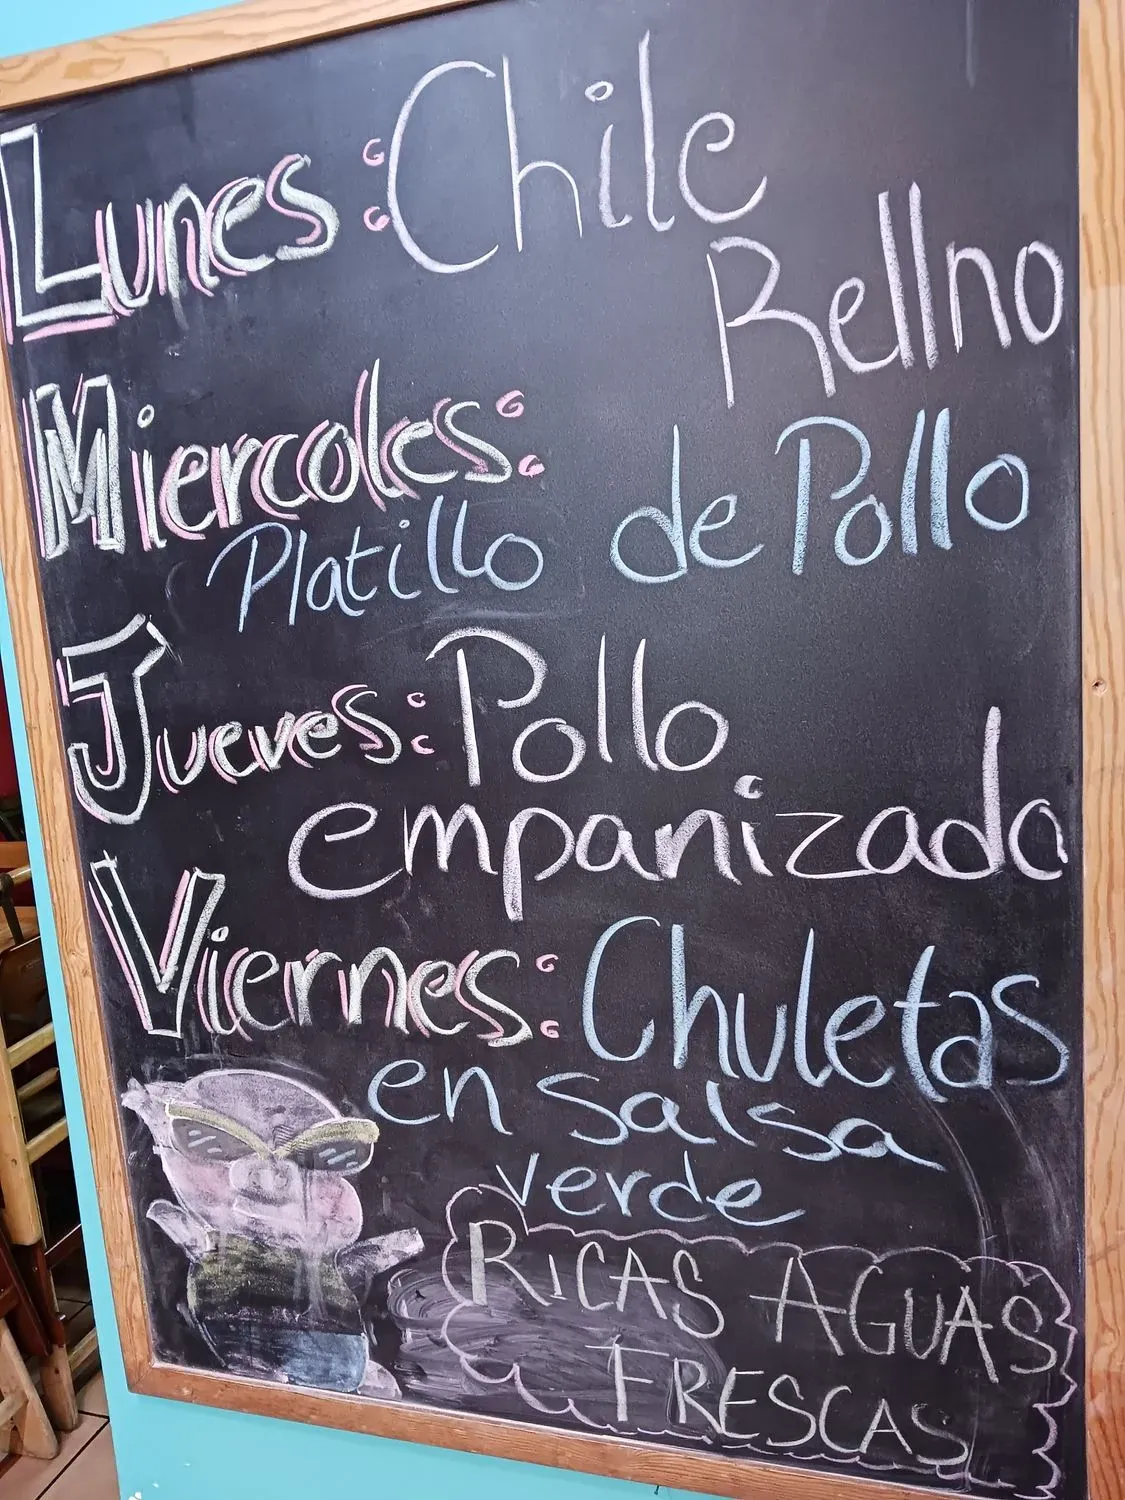 Lunes: Chile
Rellno
Miercoles:
Platillo de Pollo
Jueves: Pollo
empanizado
Viernes: Chuletas
en salsa
verde
RICAS AGUAS
FRESCAS